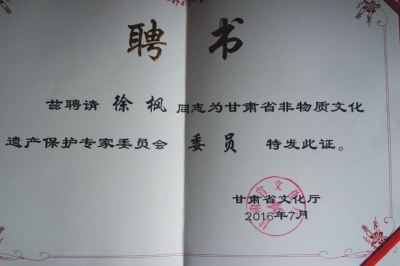 聘书
兹聘请徐枫同志为甘肃省非物质文化
遗产保护专家委员会委员特发此证。
甘肃省文化厅
2016年7月